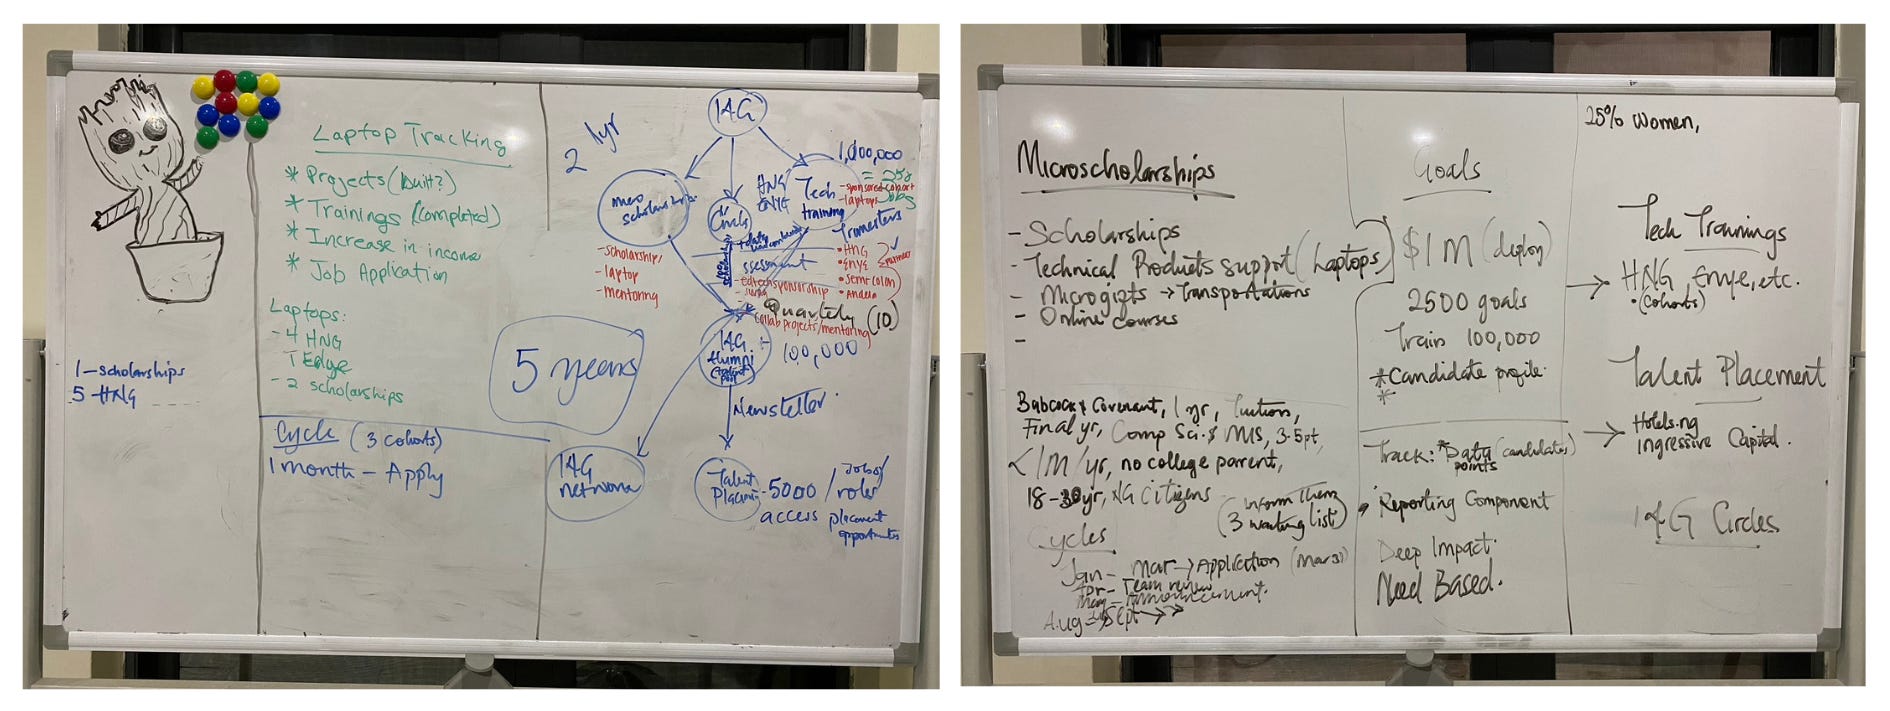 Laptop Tracking
* Projects (built?)
* Trainings (Completed)
* Increase in income
* Job Application
Laptops:
- 4 HNG
1 Edge
- 2 scholarships
1 - scholarships
5 - HNG
Cycle (3 cohorts)
1 month - Apply
1yr
2
5 years
I4G
micro
scholarships
- scholarship/
- laptop
- mentoring
Circles
HNG
ENYE
Tech
training
1,000,000
= 250
jobs
- sponsored cohort
- laptops
Trimesters
• HNG
• Enye
• Semi-colon
• Andela
Quarterly (10)
collab projects/mentoring
I4G
Alumni
(talent
pool)
100,000
Newsletter.
I4G
network
Talent
Placement
5000 / roles
Jobs/
access placement
opportunities
Microscholarships
- Scholarships
- Technical Products support (Laptops)
- Microgifts → Transportations
- Online courses
-
Babcock & Covenant, 1 yr, Tuitions,
Final yr, Comp Sci & MIS, 3.5pt,
<1M/yr, no college parent,
18-30yr, NG Citizens
(Inform them
3 waiting list)
Cycles
Jan - Mar → Application (Mars)
Apr - Team review
May - Announcement.
Aug - Sept →
Goals
$1M (deploy)
2500 goals
Train 100,000
* Candidate profile.
*
Track: * Data (candidates)
points
• Reporting Component
Deep Impact.
Need Based.
25% Women,
Tech Trainings
→ HNG, Enye, etc.
• (Cohorts)
Talent Placement
→ Hotels.ng
Ingressive Capital.
I4G Circles